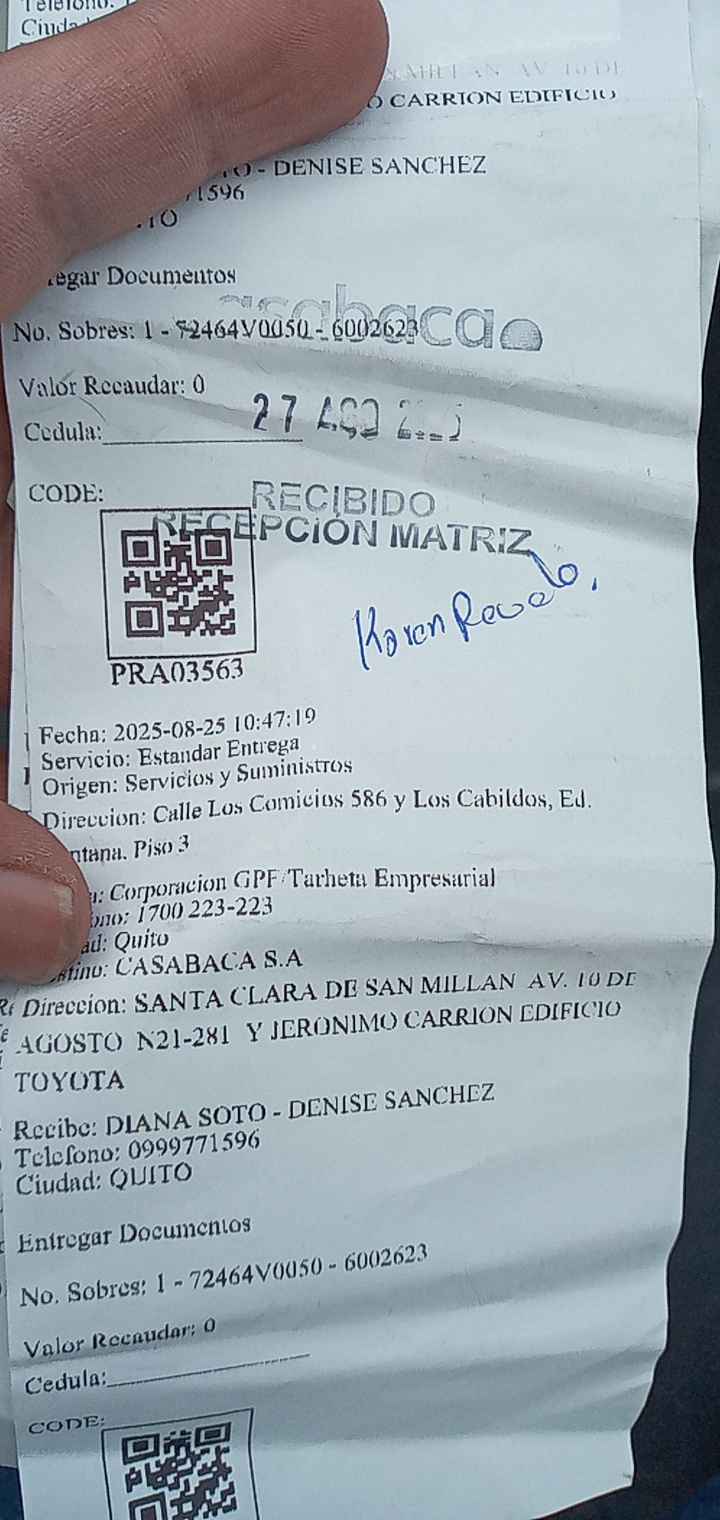 Telefono:
Ciudad
MILLAN AV. 10 DE
O CARRION EDIFICIO
TO - DENISE SANCHEZ
71596
TO
regar Documentos
asabaca
No. Sobres: 1 - 72464V0050 - 6002623
Valor Recaudar: 0
27 AGO
Cedula:
CODE:
RECIBIDO
RECEPCIÓN MATRIZ
Karen
PRA03563
Fecha: 2025-08-25 10:47:19
Servicio: Estandar Entrega
Origen: Servicios y Suministros
Direccion: Calle Los Comicios 586 y Los Cabildos, Ed.
ntana. Piso 3
a: Corporacion GPF/Tarheta Empresarial
ono: 1700 223-223
ad: Quito
stino: CASABACA S.A
Direccion: SANTA CLARA DE SAN MILLAN AV. 10 DE
AGOSTO N21-281 Y JERONIMO CARRION EDIFICIO
TOYOTA
Recibe: DIANA SOTO - DENISE SANCHEZ
Telefono: 0999771596
Ciudad: QUITO
Entregar Documentos
No. Sobres: 1 - 72464V0050 - 6002623
Valor Recaudar: 0
Cedula:
CODE: